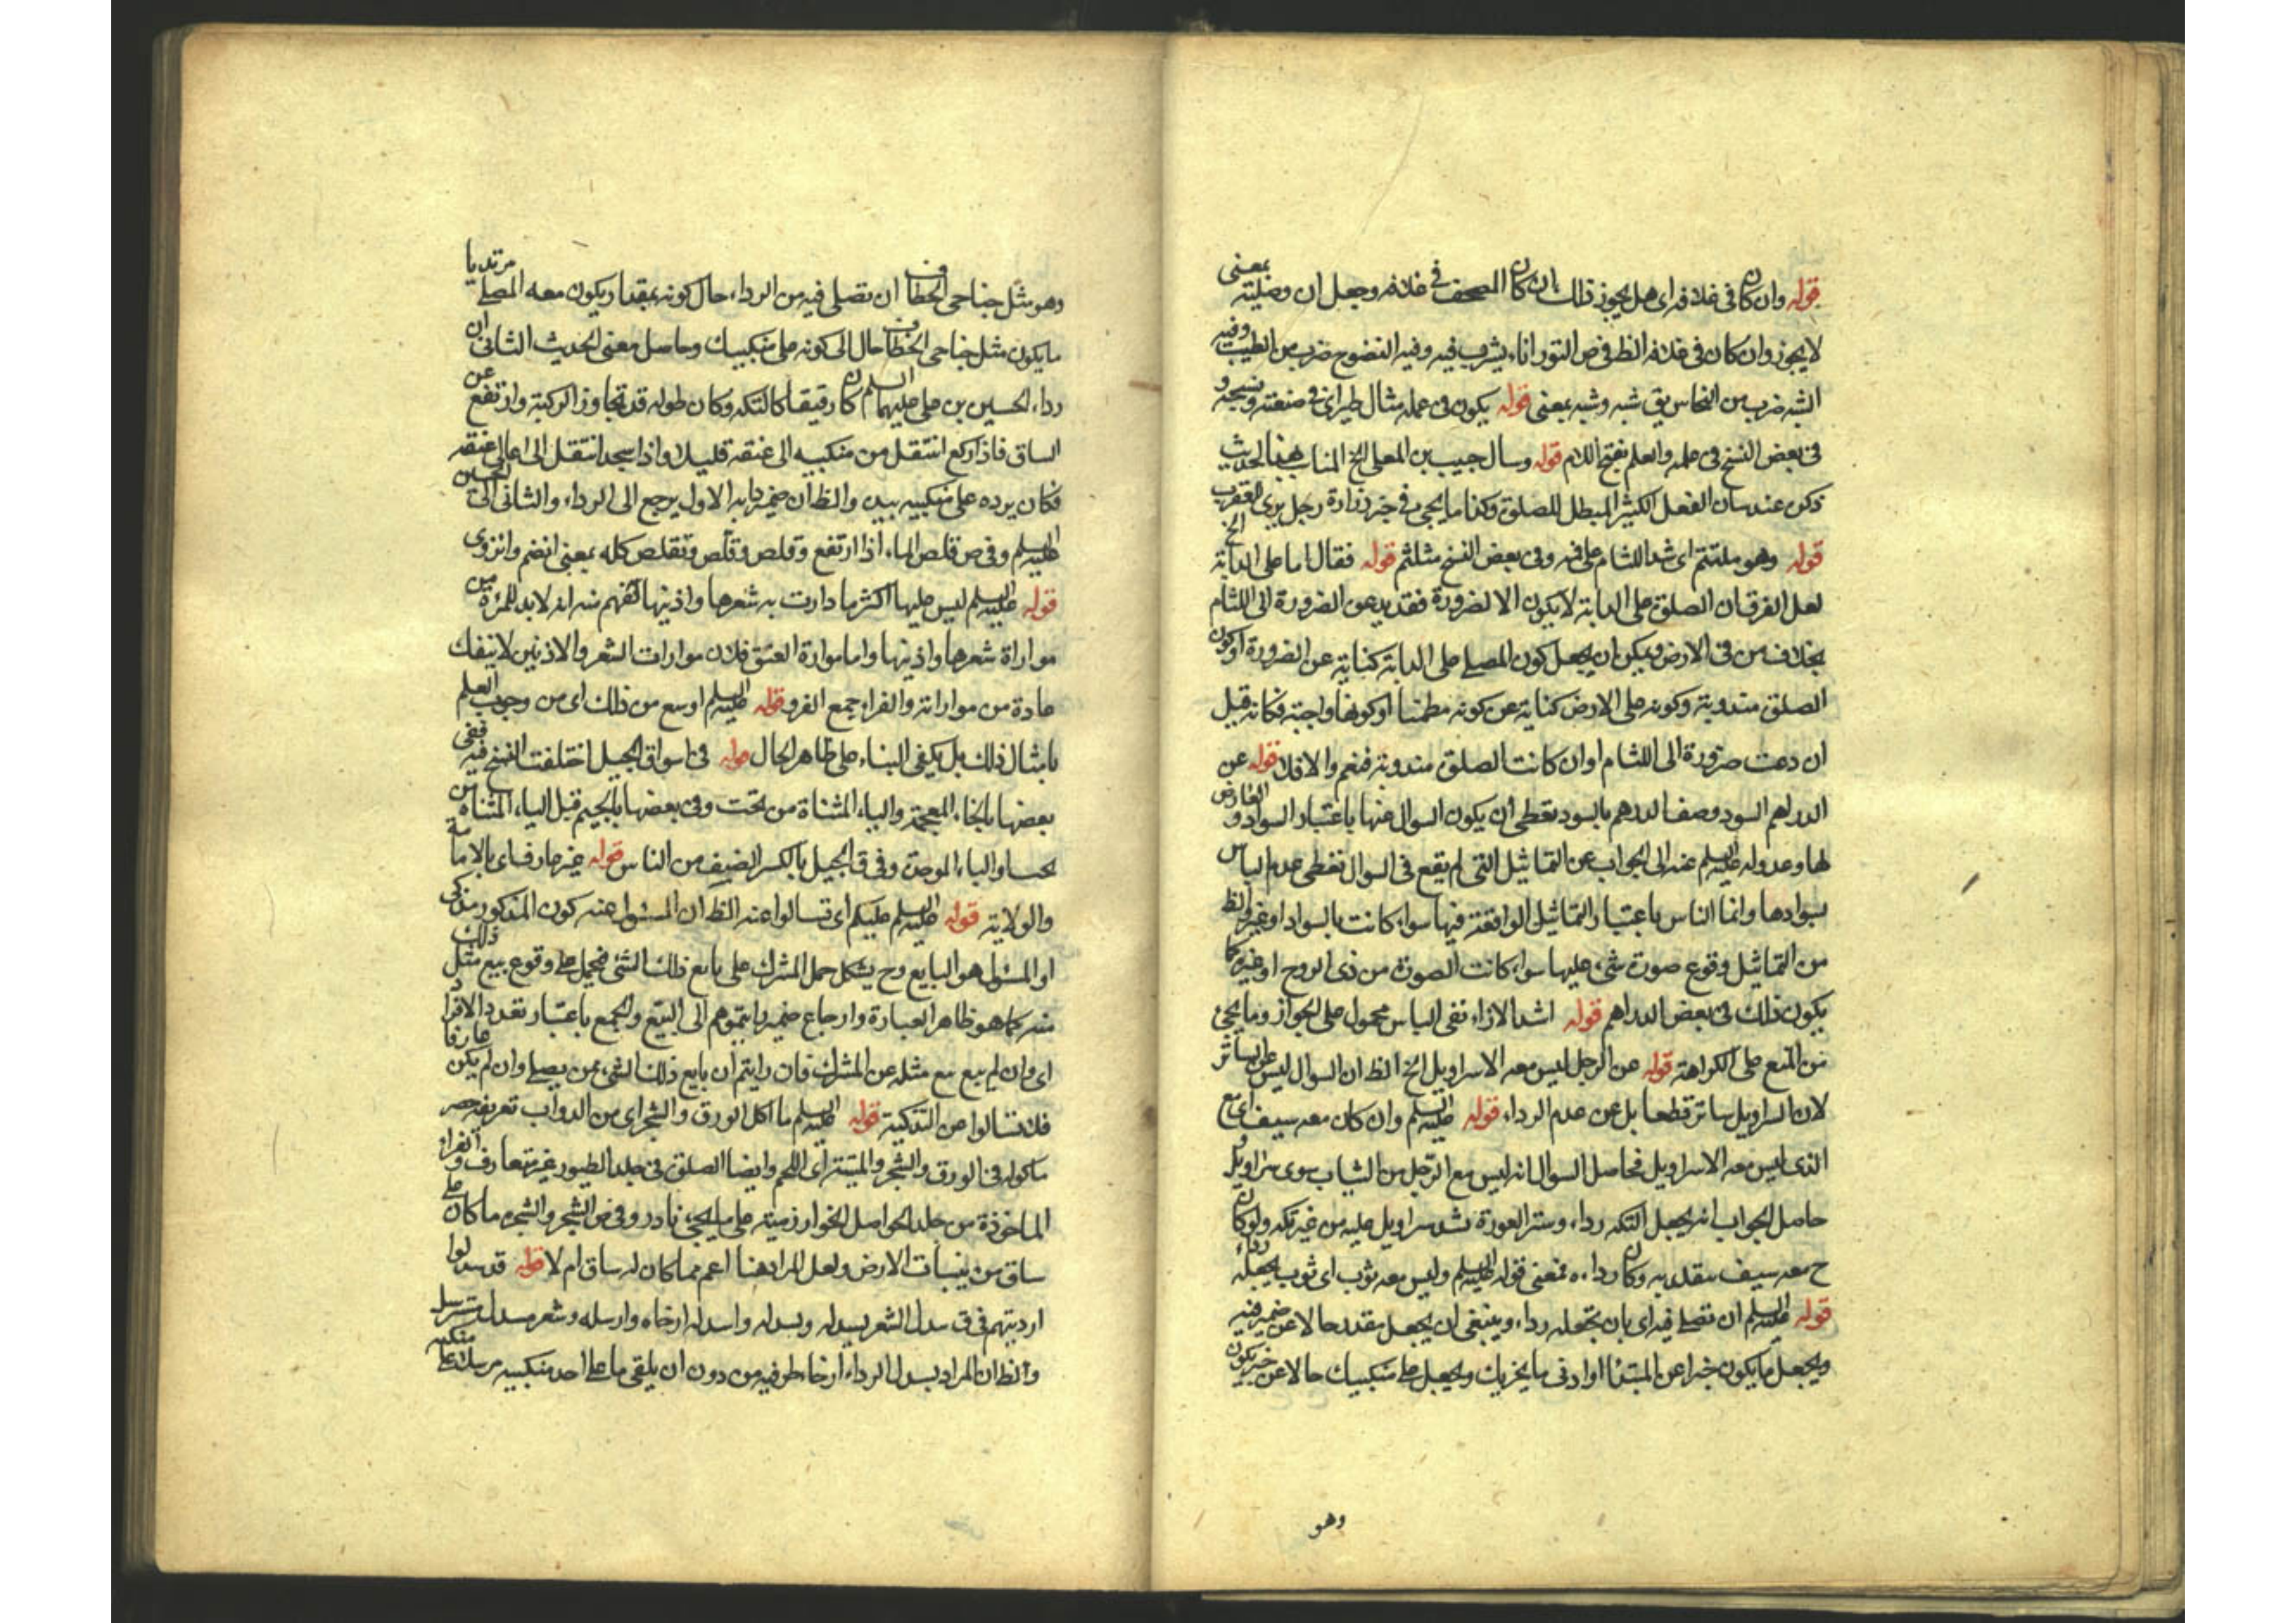 قوله وان كان فى غلافه اى هل يجوز ذلك ان كان المصحف فى غلافه وجعل ان وصليته بمعنى
لا يجوز وان كان فى غلافه الظ فى ص التور اناء يشرب فيه وفيه النضوح ضرب من الطيب وفيه
الشبه ضرب من النحاس يق شبه وشبه بمعنى قوله يكون فى عمله مثال طير اى فى صنعته ونسجه و
فى بعض النسخ فى علمه والعلم بفتح اللام قوله وسال حبيب بن المعلى الخ المناسب لهذا الحديث
ذكره عند بيان الفعل الكثير المبطل للصلوة وكذا ما يجئ فى خبر زرارة رجل يرى العقرب الخ
قوله وهو ملتثم اى شد اللثام على فيه وفى بعض النسخ متلثم قوله فقال اما على الدابة
لعل الفرق ان الصلوة على الدابة لا يكون الا لضرورة فقد يدعوا الضرورة الى اللثام
بخلاف من فى الارض ويمكن ان يجعل كون المصلى على الدابة كناية عن الضرورة او كون
الصلوة مندوبة وكونه على الارض كناية عن كونه مطمئنا او كونها واجبة فكانه قيل
ان دعت ضرورة الى اللثام او ان كانت الصلوة مندوبة فنعم والا فلا قوله عن
الدراهم السود وصف الدرهم بالسود يعطى ان يكون السوال عنها باعتبار السواد العارض
لها وعدوله عليه السلم عنه الى الجواب عن التماثيل التى لم يقع فى السوال تعطى عدم الباس
بسوادها وانما الناس باعتبار التماثيل الواقعة فيها سواء كانت بالسواد او غيره والظ
من التماثيل وقوع صورة شئ عليها سواء كانت الصورة من ذى الروح او غيره كما
يكون ذلك فى بعض الدراهم قوله اشد الازاء نفى الباس محمول على الجواز وما يجئ
من المنع على الكراهة قوله عن الرجل ليس معه الا سراويل الخ الظ ان السوال ليس عن الساتر
لان السراويل ساتر قطعا بل عن عدم الرداء قوله عليه السلم وان كان معه سيف اى مع
الذى ليس معه الا سراويل فحاصل السوال انه ليس مع الرجل من الثياب سوى سراويل و
حاصل الجواب انه يجعل التكه رداء وستر العورة بشد سراويل عليه من غير تكه ولو كان
ح معه سيف يتقلد به وكان رداءه فمعنى قوله عليه السلم وليس معه ثوب اى ثوب يجعله رداء
قوله عليه السلم ان تصلى فيه اى بان تجعله رداء وينبغى ان يجعل بقدر حالا عن ضمير فيه
ويجعل ما يكون خبرا عن المبتدا او ادنى ما يجزيك ويجعل على منكبيك حالا عن خبر يكون
وهو
وهو مثل جناحى الخطاف ان تصلى فيه من الرداء حال كونه بقدر ويكون معه المصلى مرتديا
ما يكون مثل جناحى الخطاف حال الى كونه على منكبيك وحاصل معنى الحديث الثانى ان
رداء الحسين بن على عليهما السلم كان رقيقا كالتكه وكان طوله قد تجاوز الركبة وارتفع عن
الساق فاذا ركع انتقل من منكبيه الى عنقه قليلا واذا سجد انتقل الى اعالى عنقه
فكان يرده على منكبيه بيده والظ ان ضمير دابه الاول يرجع الى الرداء والثانى الى الحسين
عليه السلم وفى ص قلص الماء اذا ارتفع وقلص وقلّص وتقلص كله بمعنى انضم وانزوى
قوله عليه السلم ليس عليها اكثر ما دارت به شعرها واذنيها تفهم منه انه لا بد للمرءة من
مواراة شعرها واذنيها واما مواراة العنق فلان موارات الشعر والاذنين لا ينفك
عادة من مواراته والفراء جمع الفرو قوله عليه السلم اوسع من ذلك اى من وجوب العلم
بامثال ذلك بل يكفى البناء على ظاهر الحال قوله فى اسواق الجبل اختلفت النسخ فيه ففى
بعضها بالخاء المعجمة والياء المثناة من تحت وفى بعضها بالجيم قبل الياء المثناة من
تحت والباء الموحدة وفى ق الجيل بالكسر الصنف من الناس قوله غير عارف اى بالامامة
والولاية قوله عليه السلم عليكم اى تسالوا عنه الظ ان المسئول عنه كون المذكور مذكى
او المسئول هو البايع وح يشكل حمل المشرك على بايع ذلك الشئ فيحمل على وقوع بيع مثل ذلك
منه كما هو ظاهر العبارة وارجاع ضمير رايتموهم الى البيع والجمع باعتبار تعدد الافراد
اى وان لم يبع بيع مثله عن المشرك فان رايتم ان بايع ذلك الشئ ممن يصلى وان لم يكن عارفا
فلا تسالوا عن التذكية قوله عليه السلم ما اكل الورق والشجر اى من الدواب تعريفه حصر
ماكوله فى الورق والشجر والميتة اى اللحم وايضا الصلوة فى جلد الطيور غير متعارف والفراء
الماخوذة من جلد الحواصل الخوارزمية على ما يجئ نادر وفى ص الشجر والشجره ما كان على
ساق من نبات الارض ولعل المراد هنا اعم مما كان له ساق ام لا قوله قد سدلوا
ارديتهم فى ق سدل الشعر يسدله ويسدله واسدله ارخاه وارسله وشعر مسدل مسترسل
والظ ان المراد بسدل الرداء ارخاء طرفيه من دون ان يلقى ما على احد منكبيه مرسلا على منكبه